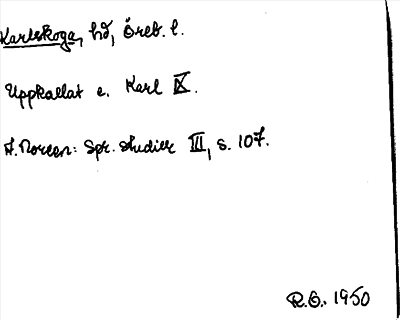 Karlskoga, hd, Öreb. l.
Uppkallat e. Karl IX.
A. Noreen: Spr. studier III, s. 107.
R.O. 1950